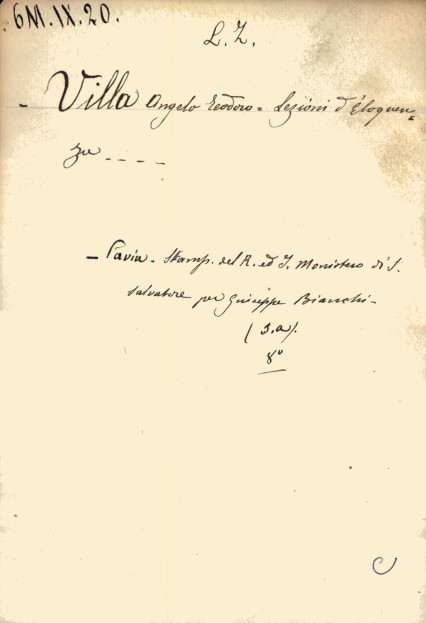 6M.IX.20.
L. Z.
- Villa Angelo Teodoro = Lezioni d'Eloquen=
za - - - -
- Pavia - Stamp. del R. ed I. Monistero di S.
Salvatore per Giuseppe Bianchi -
(s.a).
8°